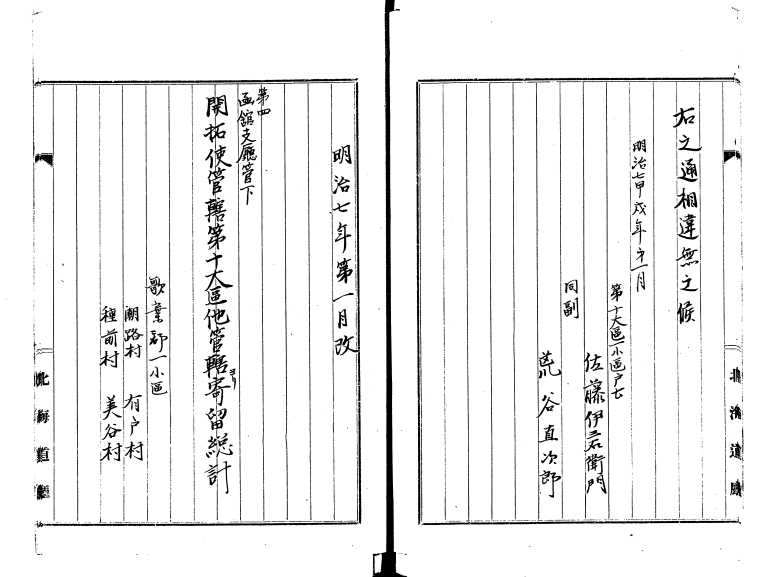 右之通相違無之候
明治七甲戌年第一月
第十大區一小區戸長
佐藤伊三右衛門
同副
荒谷直次郎
明治七年第一月改
第四
函館支廳管下
開拓使管轄第十大區他管轄ヨリ寄留総計
歌棄郡一小區
潮路村 有戸村
種前村 美谷村
北海道廳